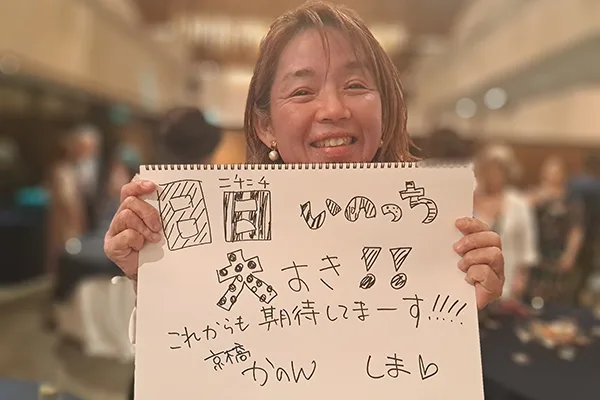 ニチニチ
日日 いのっち
大すき!!
これからも期待してまーす!!!!!
京橋
かのん しま♡